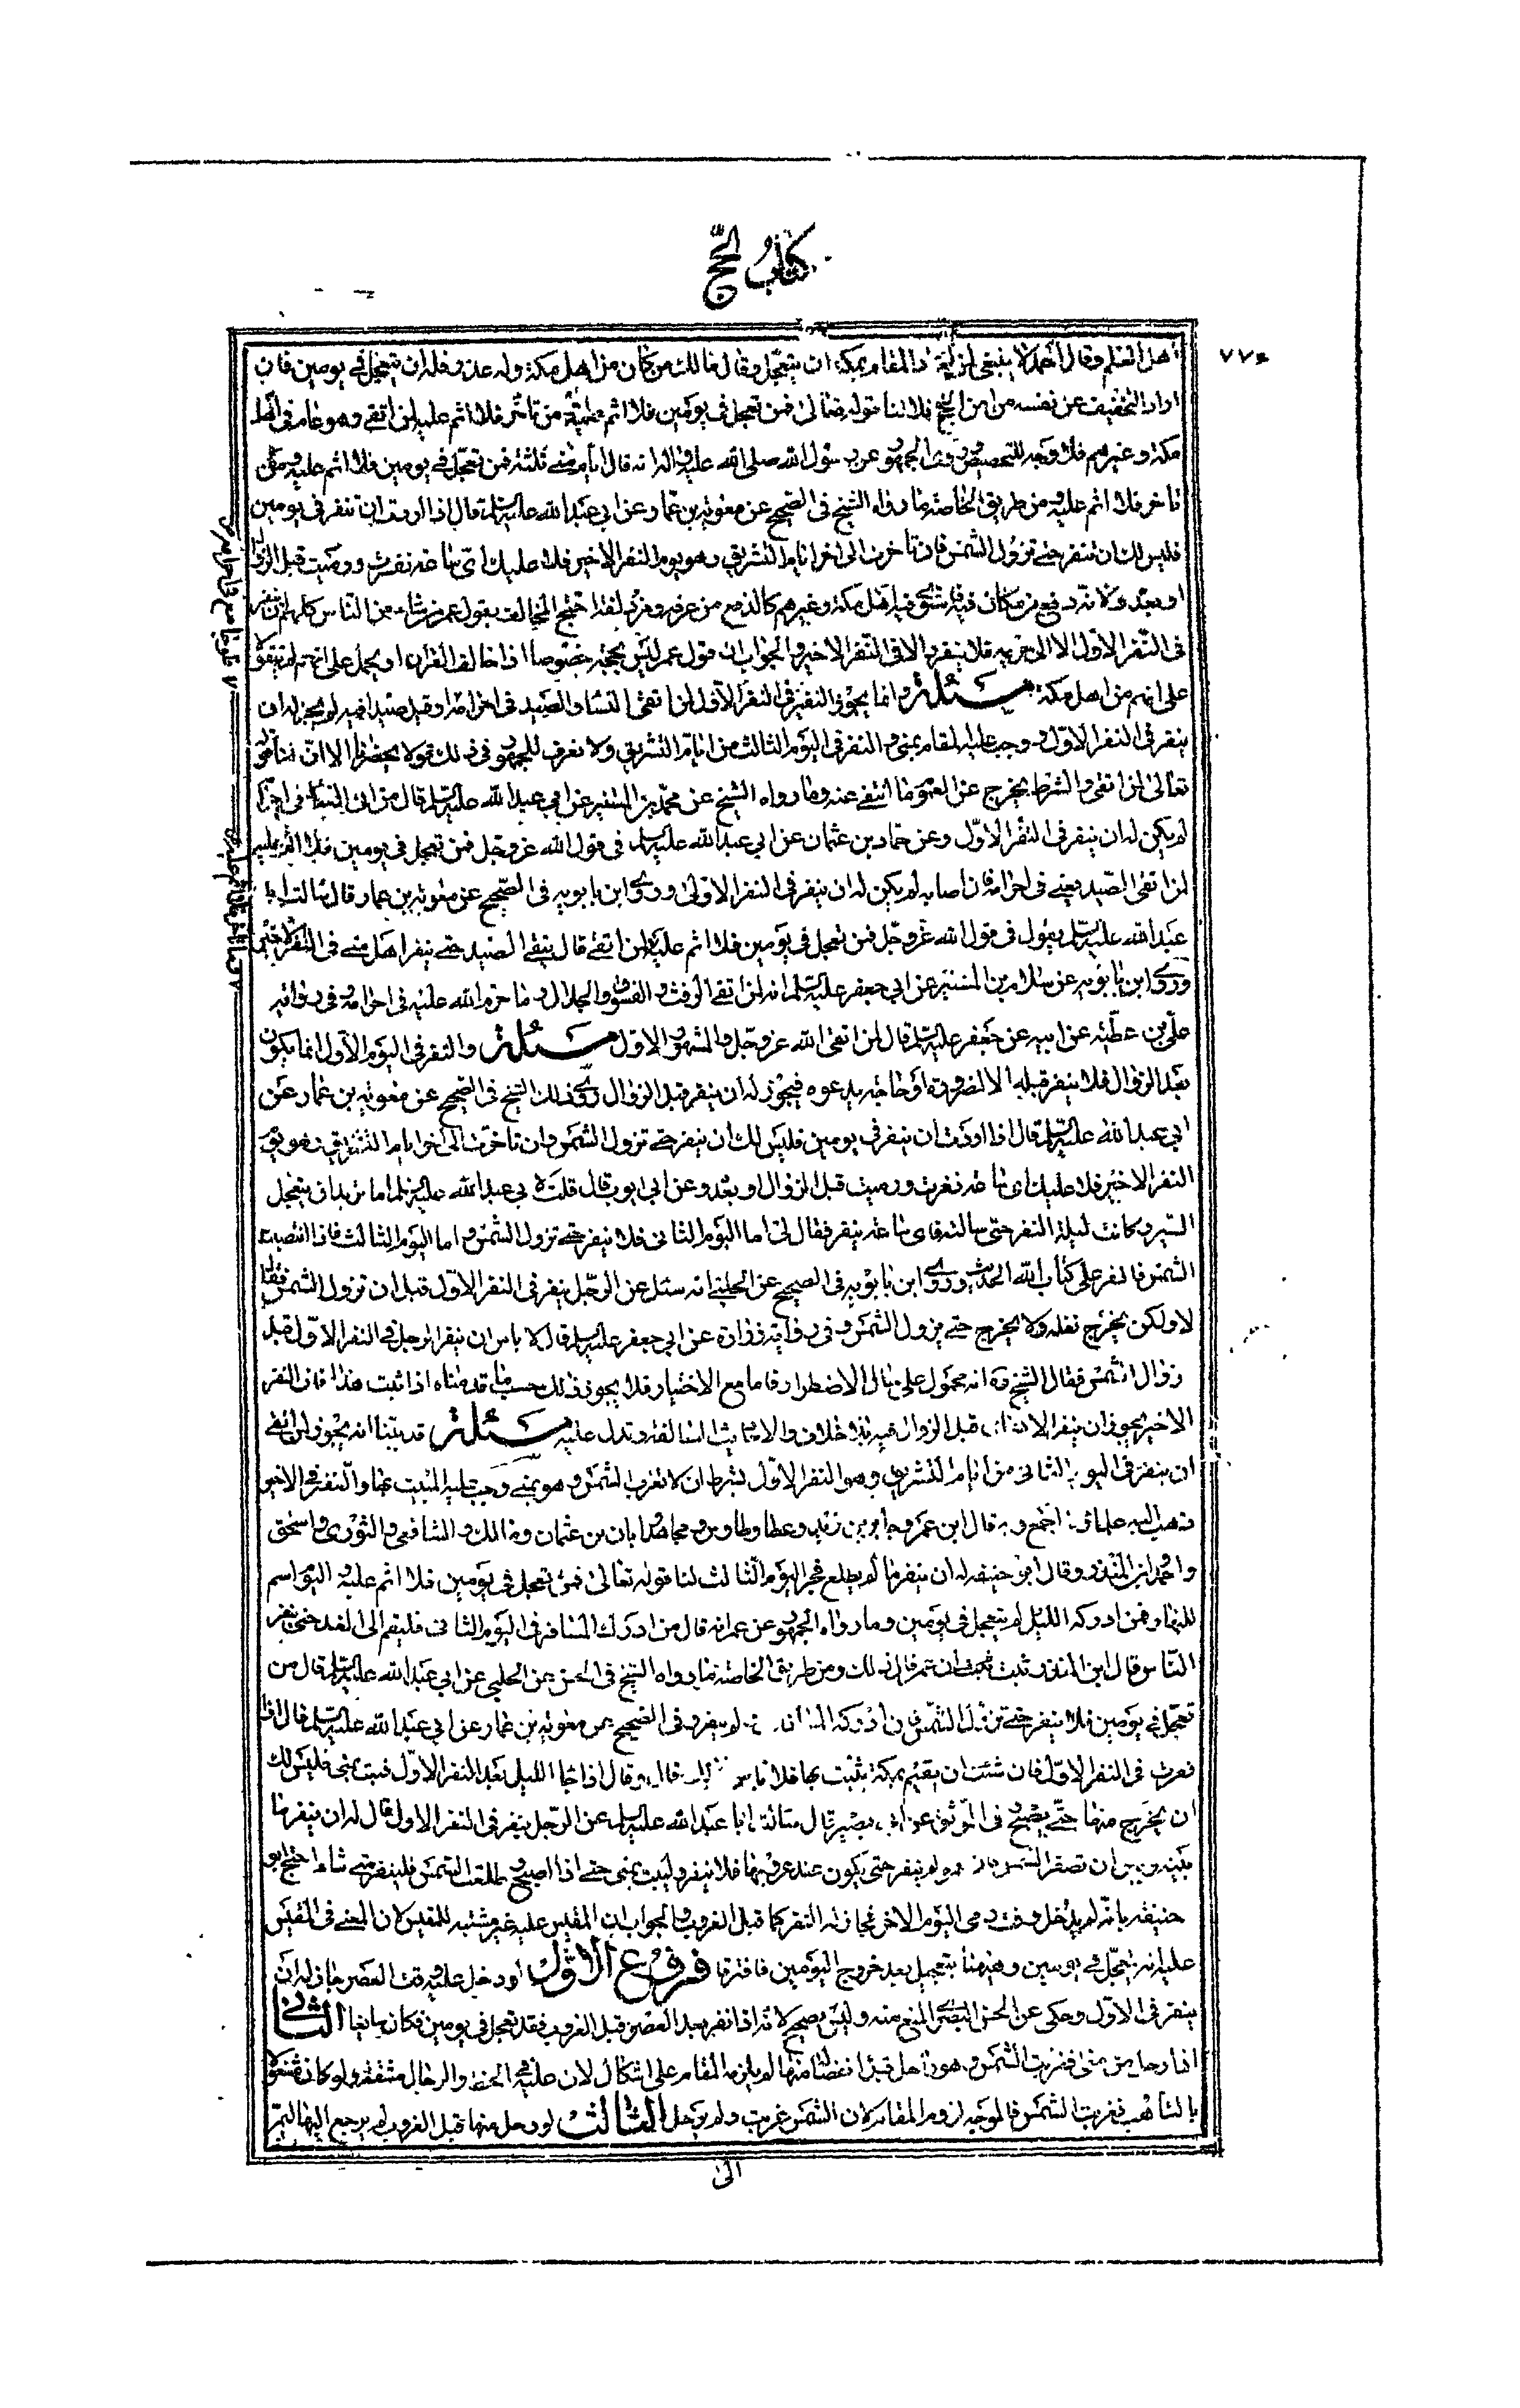 كتاب الحج
٧٧٤
اهل العلم وقال احمد لا ينبغي لمن اراد المقام بمكة ان يتعجل وقال مالك من كان من اهل مكة وله عذر فله ان يتعجل في يومين فان
اراد التخفيف عن نفسه من امر الحج فلا لنا قوله تعالى فمن تعجل في يومين فلا اثم عليه ومن تاخر فلا اثم عليه لمن اتقى وهو عام في اهل
مكة وغيرهم فلا وجه للتخصيص وروى الجمهور عن رسول الله صلى الله عليه واله انه قال ايام منى ثلثة فمن تعجل في يومين فلا اثم عليه ومن
تاخر فلا اثم عليه ومن طريق الخاصة ما رواه الشيخ في الصحيح عن معوية بن عمار عن ابي عبد الله عليه السلم قال اذا اردت ان تنفر في يومين
فليس لك ان تنفر حتى تزول الشمس فان تاخرت الى اخر ايام التشريق وهو يوم النفر الاخير فلا عليك اي ساعة نفرت ورميت قبل الزوال
او بعده ولانه دفع من مكان فيستوي فيه اهل مكة وغيرهم كالدفع من عرفة ومزدلفة احتج المخالف بقول عمر من شاء من الناس كلهم ان ينفر
في النفر الاول الا ال خزيمة فلا ينفرون الا في النفر الاخير والجواب ان قول عمر ليس بحجة خصوصا اذا خالف القران او يحمل على انهم لم يتقوا لا
على انهم من اهل مكة مسئلة وانما يجوز النفير في النفر الاول لمن اتقى النساء والصيد في احرامه او قتل صيدا فيه لم يجز له ان
ينفر في النفر الاول ووجب عليه المقام بمنى والنفر في اليوم الثالث من ايام التشريق ولا نعرف للجمهور في ذلك قولا يحضرنا الا ان لنا قوله
تعالى لمن اتقى والشرط يخرج عن العموم ما انتفى عنه وما رواه الشيخ عن محمد بن المستنير عن ابي عبد الله عليه السلم قال من اتى النساء في احرامه
لم يكن له ان ينفر في النفر الاول وعن حماد بن عثمان عن ابي عبد الله عليه السلم في قول الله عز وجل فمن تعجل في يومين فلا اثم عليه
لمن اتقى الصيد يعني في احرامه فان اصابه لم يكن له ان ينفر في النفر الاول وروى ابن بابويه في الصحيح عن معوية بن عمار قال سالت ابا
عبد الله عليه السلم يقول في قول الله عز وجل فمن تعجل في يومين فلا اثم عليه لمن اتقى قال يتقي الصيد حتى ينفر اهل منى في النفر الاخير
وروى ابن بابويه عن سلام بن المستنير عن ابي جعفر عليه السلم انه لمن اتقى الرفث والفسوق والجدال وما حرم الله عليه في احرامه وفي رواية
علي بن عطية عن ابيه عن ابي جعفر عليه السلم قال لمن اتقى الله عز وجل والمشهور الاول مسئلة والنفر في اليوم الاول انما يكون
بعد الزوال فلا ينفر قبله الا لضرورة او حاجة يدعوه فيجوز له ان ينفر قبل الزوال روى ذلك الشيخ في الصحيح عن معوية بن عمار عن
ابي عبد الله عليه السلم قال اذا اردت ان ينفر في يومين فليس لك ان ينفر حتى تزول الشمس وان تاخرت الى اخر ايام التشريق وهو يوم
النفر الاخير فلا عليك اي ساعة نفرت ورميت قبل الزوال او بعده وعن ابي ايوب قال قلت لابي عبد الله عليه السلم انا نريد ان يتعجل
السير وكانت ليلة النفر حتى سالته فاي ساعة ينفر فقال لي اما اليوم الثاني فلا ينفر حتى تزول الشمس واما اليوم الثالث فاذا انتصبت
الشمس فانفر على كتاب الله الحديث وروى ابن بابويه في الصحيح عن الحلبي انه سئل عن الرجل ينفر في النفر الاول قبل ان تزول الشمس فقال
لا ولكن يخرج ثقله ولا يخرج حتى يزول الشمس وفي رواية زرارة عن ابي جعفر عليه السلم قال لا باس ان ينفر الرجل في النفر الاول قبل
زوال الشمس فقال الشيخ ره انه محمول على حال الاضطرار فاما مع الاختيار فلا يجوز ذلك حسب ما قدمناه اذا ثبت هذا فان النفر
الاخير يجوز ان ينفر الانسان قبل الزوال فيه بلا خلاف والاحاديث السالفة تدل عليه مسئلة قد بينا انه يجوز لمن اتقى
ان ينفر في اليوم الثاني من ايام التشريق وهو النفر الاول بشرط ان لا تغرب الشمس وهو بمنى وجب عليه المبيت بها والنفر في الاخير
ذهب اليه علماؤنا اجمع وبه قال ابن عمر وجابر بن زيد وعطا وطاوس ومجاهد وابان بن عثمان ومالك والشافعي والثوري واسحق
واحمد وابن المنذر وقال ابو حنيفة له ان ينفر ما لم يطلع فجر اليوم الثالث لنا قوله تعالى فمن تعجل في يومين فلا اثم عليه واليوم اسم
للنهار فمن ادركه الليل لم يتعجل في يومين وما رواه الجمهور عن عمر انه قال من ادركه المساء في اليوم الثاني فليقم الى الغد حتى ينفر
الناس قال ابن المنذر ثبت ان عمر قال ذلك ومن طريق الخاصة ما رواه الشيخ في الحسن عن الحلبي عن ابي عبد الله عليه السلم قال من
تعجل في يومين فلا ينفر حتى تزول الشمس فان ادركه المساء لم ينفر وفي الصحيح عن معوية بن عمار عن ابي عبد الله عليه السلم قال اذا
نفرت في النفر الاول فان شئت ان تقيم بمكة تبيت بها فلا باس بذلك قال وقال اذا جاء الليل بعد النفر الاول فبت بمنى فليس لك
ان يخرج منها حتى يصبح وفي الموثق عن ابي بصير قال سالت ابا عبد الله عليه السلم عن الرجل ينفر في النفر الاول قال له ان ينفر ما
بينه وبين ان تصفر الشمس فان هو لم ينفر حتى يكون عند غروبها فلا ينفر وليبت بمنى حتى اذا اصبح وطلعت الشمس فلينفر متى شاء احتج ابو
حنيفة بانه لم يدخل وقت رمي اليوم الاخر فجاز له النفر كما قبل الغروب والجواب ان المقيس عليه غير مشتبه للمقيس لان المعنى في المقيس
عليه انه يتعجل في يومين وهيهنا يتعجل بعد خروج اليومين فافترقا فروع الاول لو دخل عليه وقت العصر جاز له ان
ينفر في الاول وحكى عن الحسن البصري المنع منه وليس بصحيح لانه اذا نفر بعد العصر قبل الغروب فقد تعجل في يومين فكان سايغا الثاني
اذا رحل من منى فغربت الشمس وهو راحل قبل انفصاله منها لم يلزمه المقام على اشكال لان عليه في الحط والرحال مشقة ولو كان مشغولا
بالتاهب فغربت الشمس فالوجه لزوم المقام لان الشمس غربت ولم يرحل الثالث لو رحل منها قبل الغروب ثم رجع اليها ليمر
الى